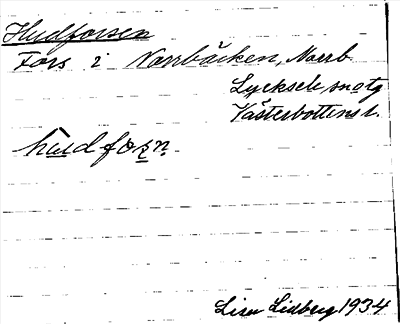 Hudforsen
Fors i Norrbäcken, Norrb.
Lycksele snotg
Västerbottens l.
hudfoṣṇ
Lisa Lidberg 1934